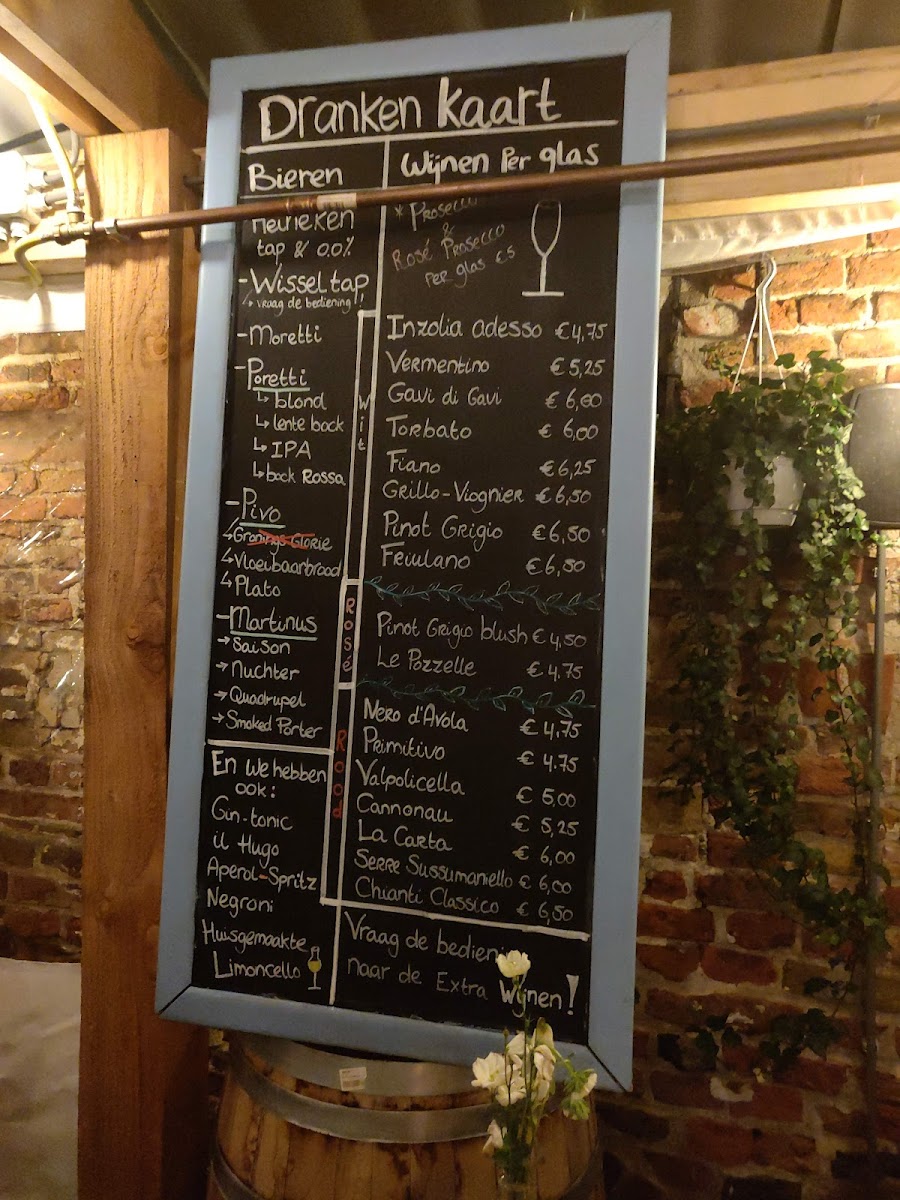 Dranken kaart
Bieren
Heineken
tap & 0.0%
-Wisseltap
↳ vraag de bediening!
-Moretti
-Poretti
↳ blond
↳ lente bock
↳ IPA
↳ bock Rossa
-Pivo
↳ Gronings Glorie
↳ Vloeibaarbrood
↳ Plato
-Martinus
→ Saison
→ Nuchter
→ Quadrupel
→ Smoked Porter
En we hebben
ook:
Gin-tonic
il Hugo
Aperol-Spritz
Negroni
Huisgemaakte
Limoncello
Wijnen Per glas
* Prosecco
&
Rosé Prosecco
Per glas €5
Wit
Inzolia adesso €4,75
Vermentino €5,25
Gavi di Gavi €6,00
Torbato €6,00
Fiano €6,25
Grillo-Viognier €6,50
Pinot Grigio €6,50
Friulano €6,50
Rosé
Pinot Grigio blush €4,50
Le Pozzelle €4.75
Rood
Nero d'Avola €4,75
Primitivo €4.75
Valpolicella €5,00
Cannonau €5,25
La Carta €6,00
Serre Sussumaniello €6,00
Chianti Classico €6,50
Vraag de bediening
naar de Extra Wijnen!